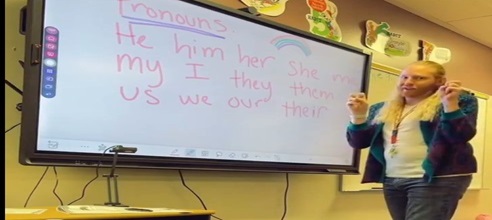 Pronouns.
He him her She m
my I they them
us we our their